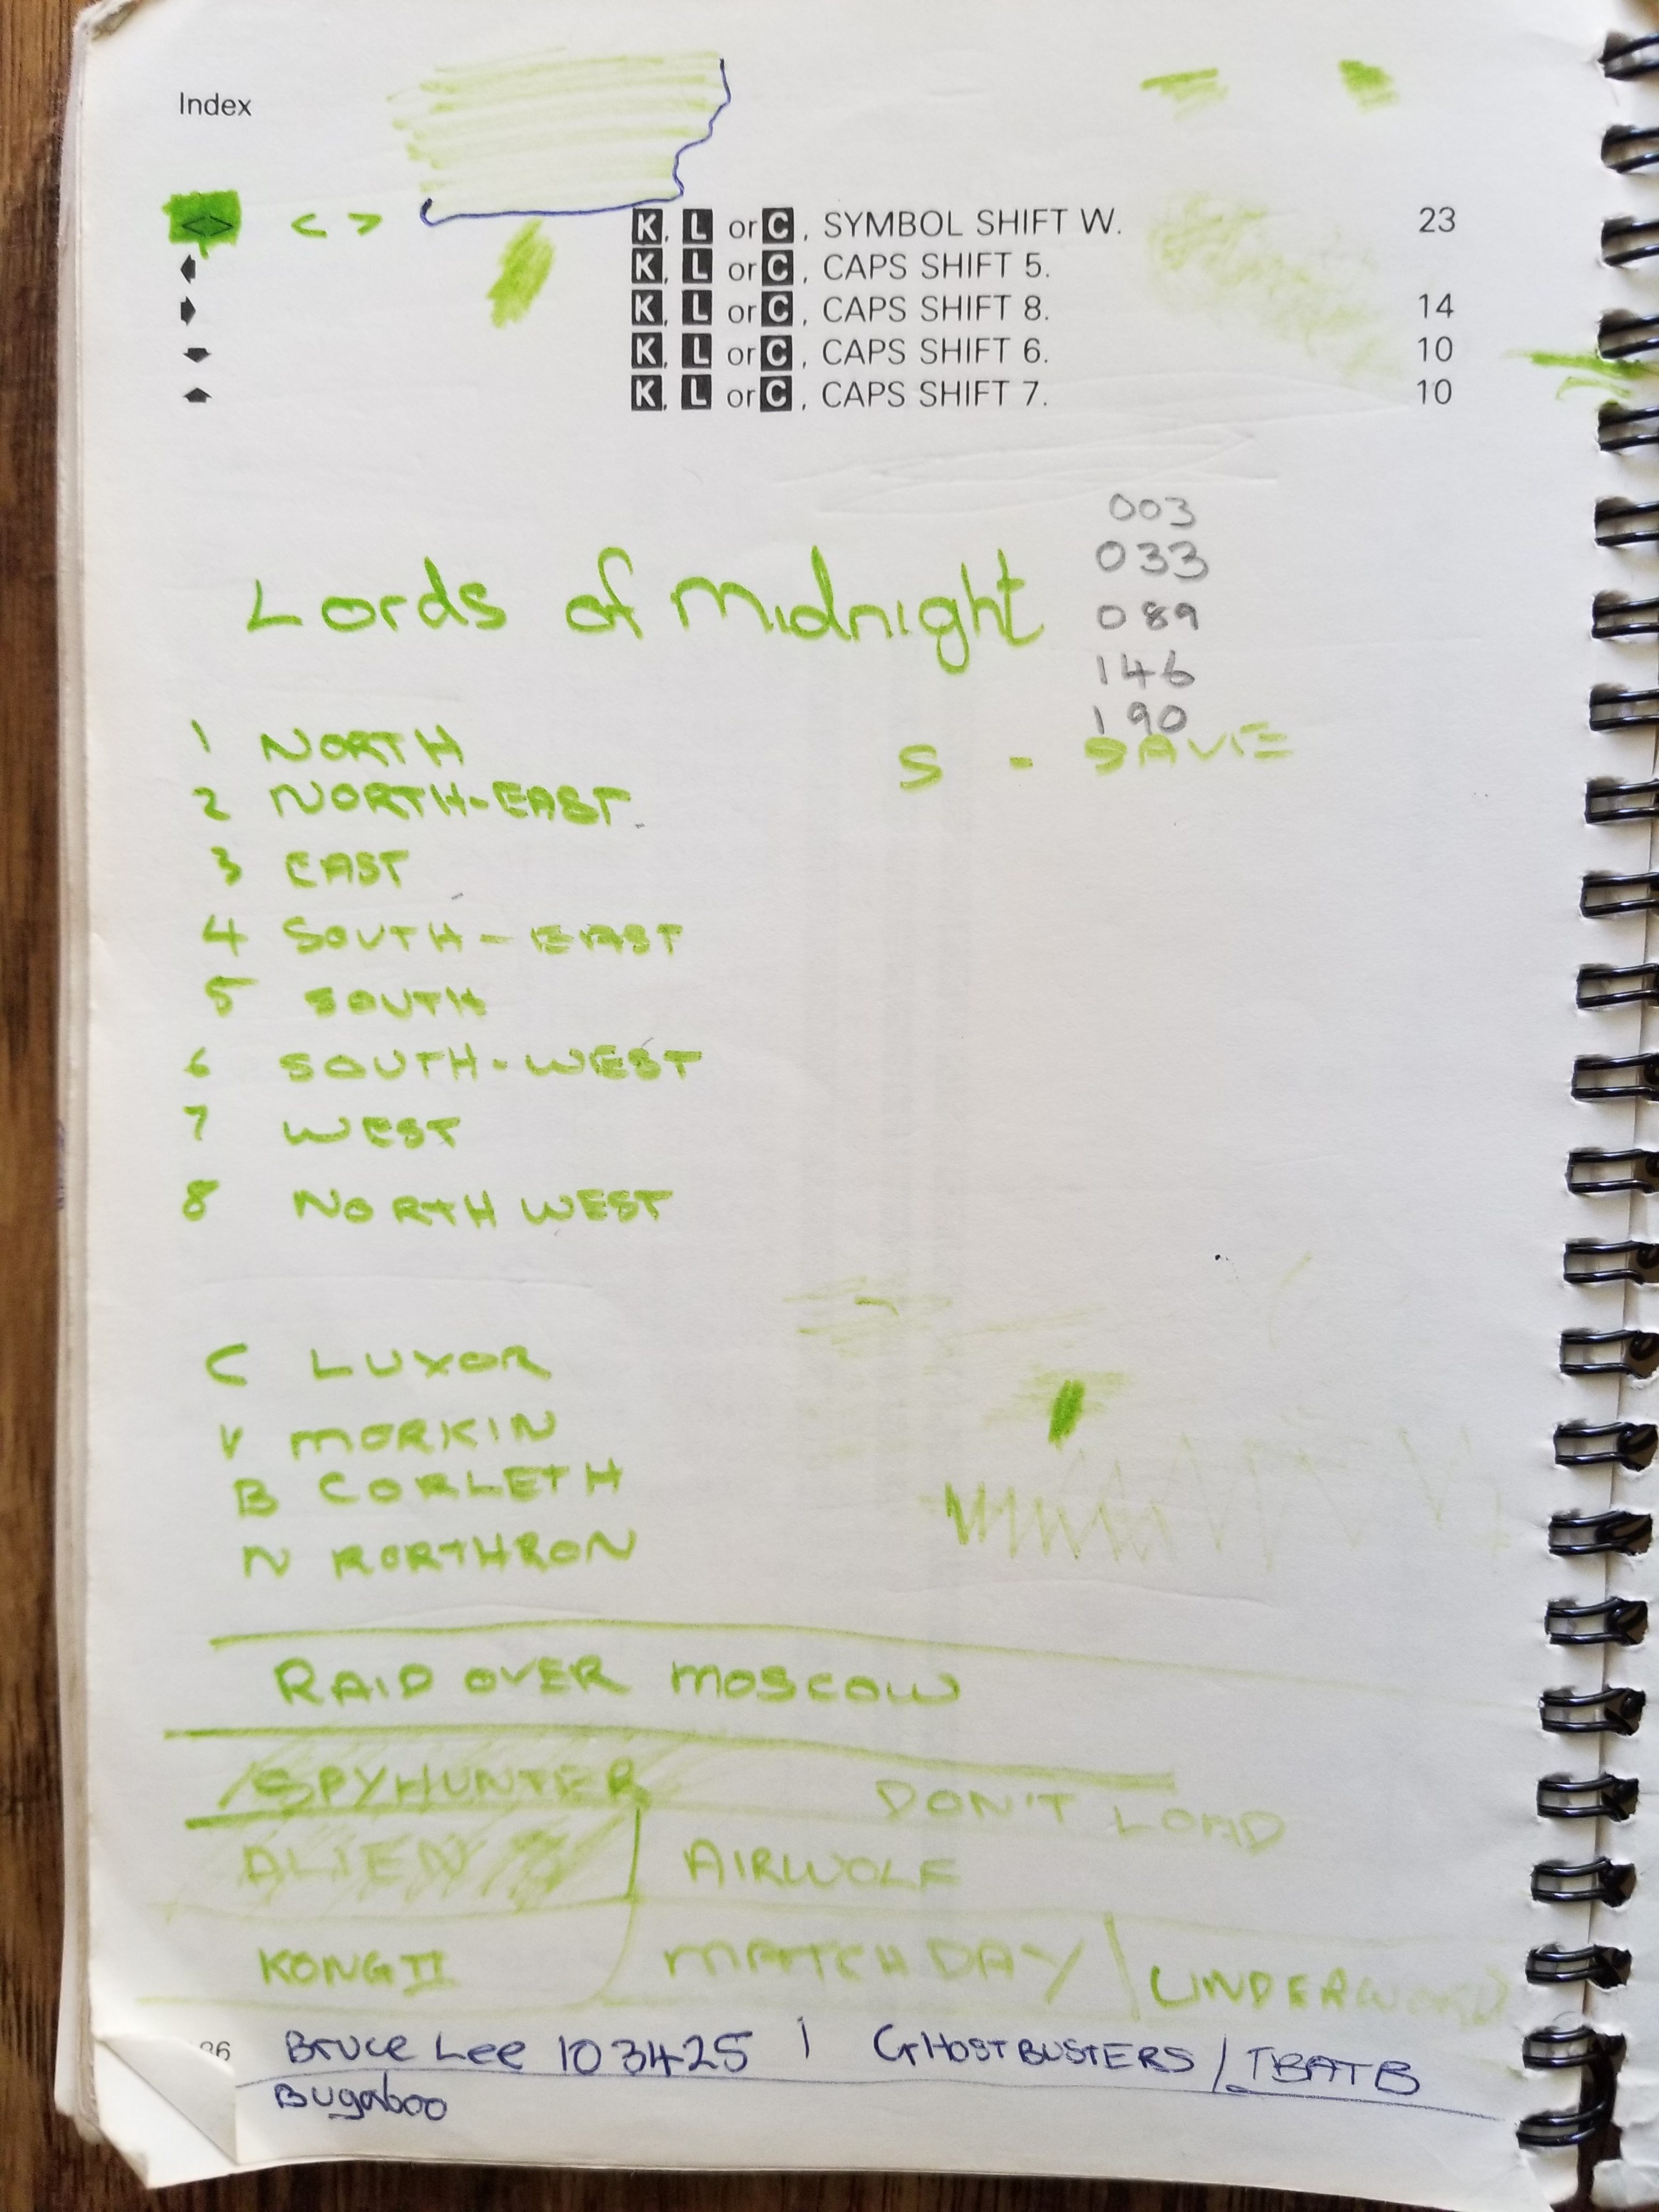 Index
<> < > K, L or C, SYMBOL SHIFT W. 23
K, L or C, CAPS SHIFT 5.
K, L or C, CAPS SHIFT 8. 14
K, L or C, CAPS SHIFT 6. 10
K, L or C, CAPS SHIFT 7. 10
003
033
089
146
190
Lords of Midnight
S - SAVE
1 NORTH
2 NORTH-EAST
3 EAST
4 SOUTH-EAST
5 SOUTH
6 SOUTH-WEST
7 WEST
8 NORTH WEST
C LUXOR
V MORKIN
B CORLETH
N RORTHRON
RAID OVER MOSCOW
SPYHUNTER DON'T LOAD
ALIEN AIRWOLF
KONG II MATCH DAY
Bruce Lee 103425 | GHOSTBUSTERS / TBATB
Bugaboo